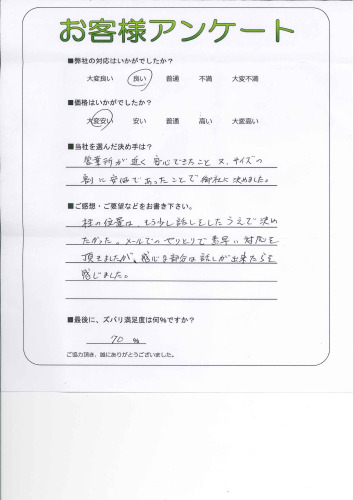 お客様アンケート
■弊社の対応はいかがでしたか？
大変良い 良い 普通 不満 大変不満
■価格はいかがでしたか？
大変安い 安い 普通 高い 大変高い
■当社を選んだ決め手は？
営業所が近く安心できたこと又、サイズの
割に安価であったことで御社に決めました。
■ご感想・ご要望などをお書き下さい。
柱の位置は、もう少し話しをしたうえで決め
たかった。メールでのやりとりで素早い対応を
頂きましたが、感じな部分は話しが出来たらと
感じました。
■最後に、ズバリ満足度は何％ですか？
70 %
ご協力頂き、誠にありがとうございました。